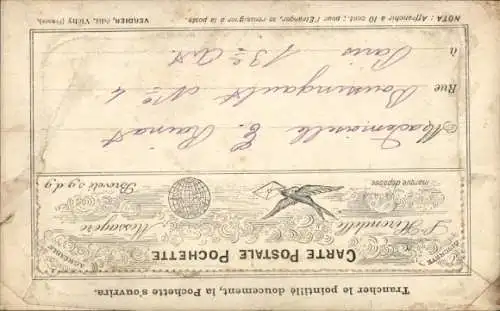 Trancher le pointillé doucement, la Pochette s'ouvrira.
CARTE POSTALE POCHETTE
L'Hirondelle Messagère
marque déposée
Breveté s.g.d.g.
Mademoiselle C. Rainat
Rue Boussingault No 4
à Paris 13e Art
NOTA : Affranchir à 10 cent.; pour l'Étranger, se renseigner à la poste.
VERDIER, édit. Vichy (France).